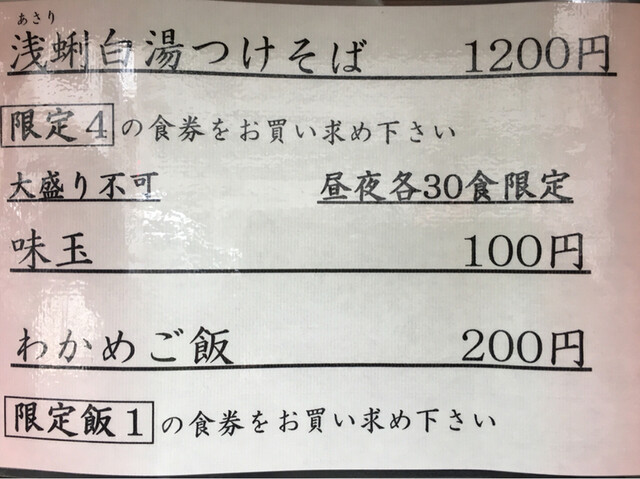 あさり
浅蜊白湯つけそば 1200円
限定4の食券をお買い求め下さい
大盛り不可 昼夜各30食限定
味玉 100円
わかめご飯 200円
限定飯1の食券をお買い求め下さい